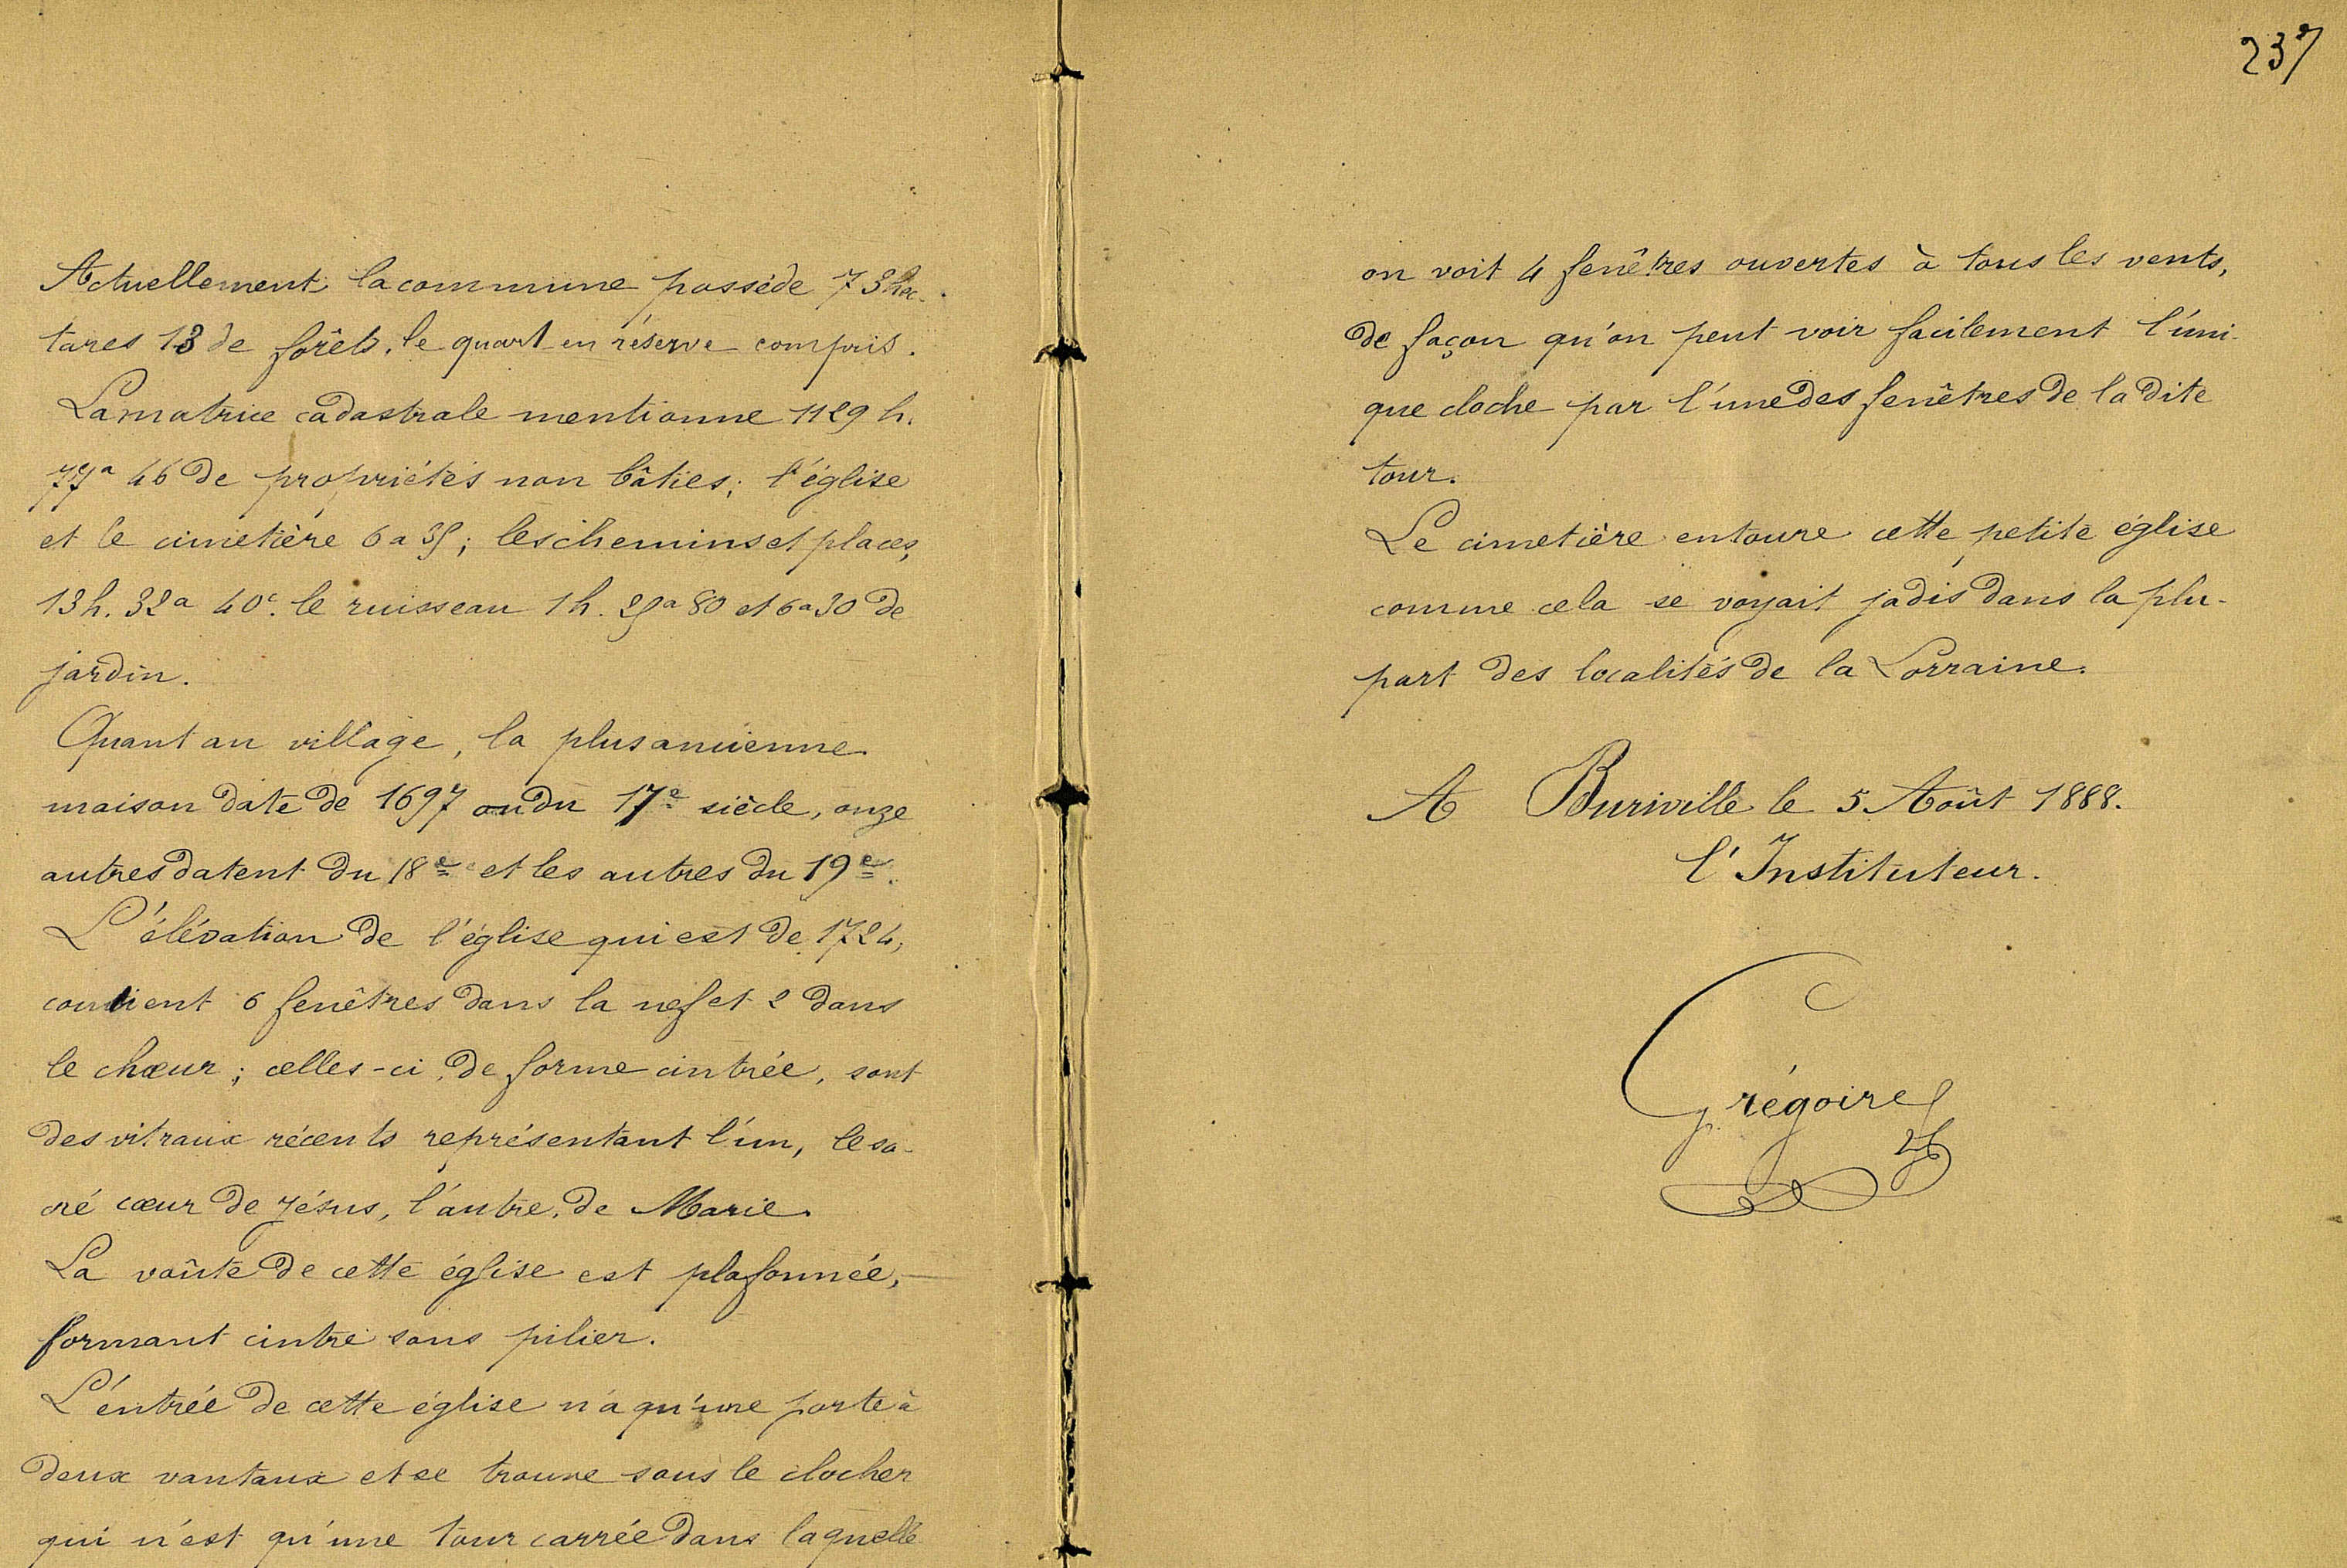 Actuellement la commune possède 73 hec-
tares 13 de forêts, le quart en réserve compris.
La matrice cadastrale mentionne 1129 h.
77a 46 de propriétés non bâties; l'église
et le cimetière 6a 35; les chemins et places,
13h. 32a 40c. le ruisseau 1h. 25a 80 et 6a 30 de
jardin.
Quant au village, la plus ancienne
maison date de 1697 ou du 17e siècle, onze
autres datent du 18e et les autres du 19e.
L'élévation de l'église qui est de 1724,
contient 6 fenêtres dans la nef et 2 dans
le chœur; celles-ci, de forme cintrée, sont
des vitraux récents représentant l'un, le sa-
cré cœur de Jésus, l'autre, de Marie.
La voûte de cette église est plafonnée,
formant cintre sans pilier.
L'entrée de cette église n'a qu'une porte à
deux vantaux et se trouve sous le clocher
qui n'est qu'une tour carrée dans laquelle
237
on voit 4 fenêtres ouvertes à tous les vents,
de façon qu'on peut voir facilement l'uni-
que cloche par l'une des fenêtres de la dite
tour.
Le cimetière entoure cette petite église
comme cela se voyait jadis dans la plu-
part des localités de la Lorraine.
A Buriville le 5 Août 1888.
l'Instituteur.
Grégoire